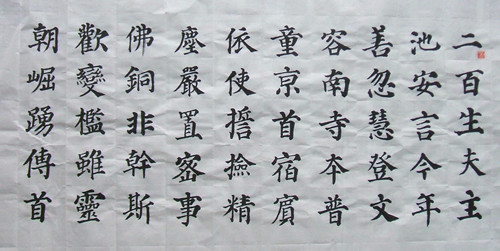 二百生夫主
池安言今年
善忽慧登文
容南寺本普
童京首宿賓
依使誓撿精
塵嚴置密事
佛銅非幹斯
歡變檻雖靈
朝崛踴傳首